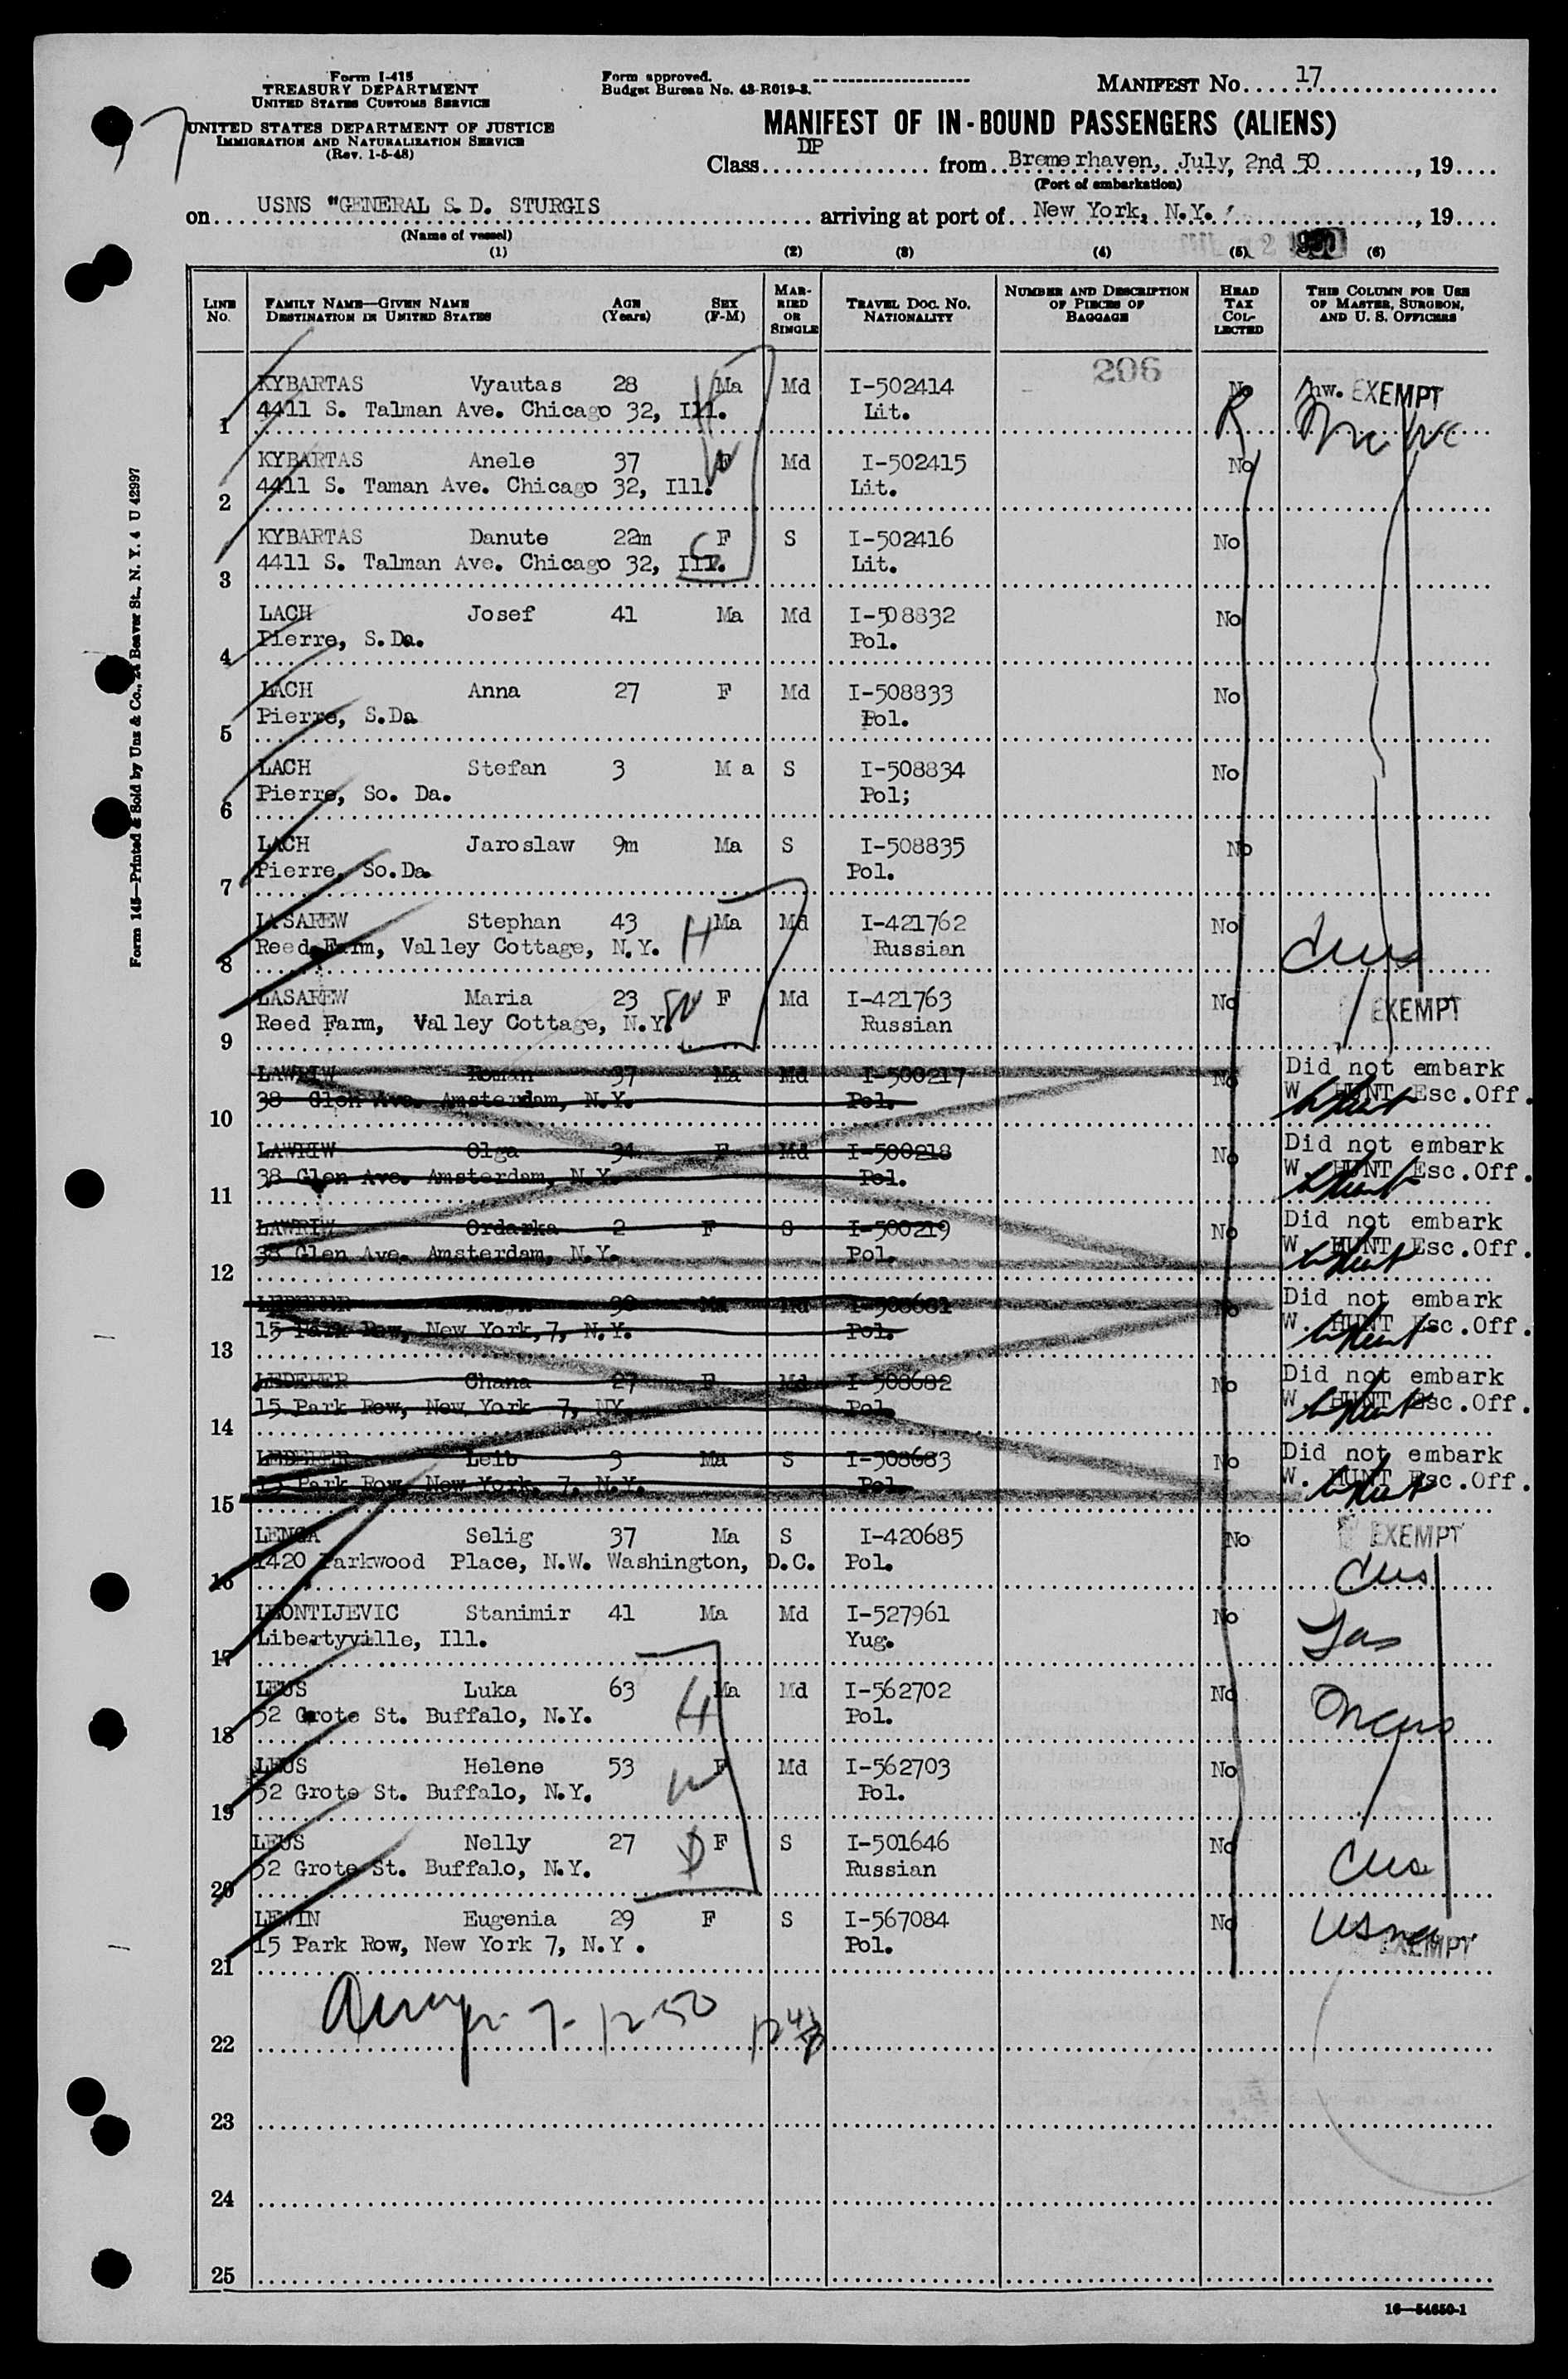 Form I-415
TREASURY DEPARTMENT
UNITED STATES CUSTOMS SERVICE
UNITED STATES DEPARTMENT OF JUSTICE
IMMIGRATION AND NATURALIZATION SERVICE
(Rev. 1-5-48)
Form approved.
Budget Bureau No. 43-R019-3.
MANIFEST No. 17
MANIFEST OF IN-BOUND PASSENGERS (ALIENS)
Class DP from Bremerhaven, July, 2nd 50, 19
(Port of embarkation)
on USNS "GENERAL S.D. STURGIS arriving at port of New York, N.Y., 19
(Name of vessel)
(1) (2) (3) (4) (5) (6)
LINE No. FAMILY NAME—GIVEN NAME DESTINATION IN UNITED STATES AGE (Years) SEX (F-M) MARRIED OR SINGLE TRAVEL DOC. NO. NATIONALITY NUMBER AND DESCRIPTION OF PIECES OF BAGGAGE HEAD TAX COLLECTED THIS COLUMN FOR USE OF MASTER, SURGEON, AND U. S. OFFICERS
206
KYBARTAS Vyautas 28 Ma Md I-502414 No EXEMPT
1 4411 S. Talman Ave. Chicago 32, Ill. Lit.
KYBARTAS Anele 37 F Md I-502415 No
2 4411 S. Taman Ave. Chicago 32, Ill. Lit.
KYBARTAS Danute 22m F S I-502416 No
3 4411 S. Talman Ave. Chicago 32, Ill. Lit.
LACH Josef 41 Ma Md I-508832 No
4 Pierre, S.Da. Pol.
LACH Anna 27 F Md I-508833 No
5 Pierre, S.Da Pol.
LACH Stefan 3 M a S I-508834 No
6 Pierre, So. Da. Pol;
LACH Jaroslaw 9m Ma S I-508835 No
7 Pierre, So.Da. Pol.
LASAREW Stephan 43 H Ma Md I-421762 No
8 Reed Farm, Valley Cottage, N.Y. Russian
LASAREW Maria 23 W F Md I-421763 No EXEMPT
9 Reed Farm, Valley Cottage, N.Y. Russian
LAWRIW Roman 37 Ma Md I-500217 No Did not embark
10 38 Glen Ave. Amsterdam, N.Y. Pol. W. HUNT Esc.Off.
LAWRIW Olga 34 F Md I-500218 No Did not embark
11 38 Glen Ave. Amsterdam, N.Y. Pol. W. HUNT Esc.Off.
LAWRIW Ordarka 2 F S I-500219 No Did not embark
12 38 Glen Ave. Amsterdam, N.Y. Pol. W. HUNT Esc.Off.
LEDERER 30 Ma Md I-508681 No Did not embark
13 15 Park Row, New York,7, N.Y. Pol. W. HUNT Esc.Off.
LEDERER Chana 27 F Md I-508682 No Did not embark
14 15 Park Row, New York 7, NY. Pol. W. HUNT Esc.Off.
LEDERER Leib 3 Ma S I-508683 No Did not embark
15 15 Park Row, New York, 7, N.Y. Pol. W. HUNT Esc.Off.
LENGA Selig 37 Ma S I-420685 No EXEMPT
16 1420 Parkwood Place, N.W. Washington, D.C. Pol.
LEONTIJEVIC Stanimir 41 Ma Md I-527961 No
17 Libertyville, Ill. Yug.
LEUS Luka 63 H Ma Md I-562702 No
18 52 Grote St. Buffalo, N.Y. Pol.
LEUS Helene 53 W F Md I-562703 No
19 52 Grote St. Buffalo, N.Y. Pol.
LEUS Nelly 27 D F S I-501646 No
20 52 Grote St. Buffalo, N.Y. Russian
LEWIN Eugenia 29 F S I-567084 No
21 15 Park Row, New York 7, N.Y. Pol. EXEMPT
22
23
24
25
16—54650-1
Form 145—Printed & Sold by Unz & Co., 24 Beaver St., N. Y. 4 U 42997